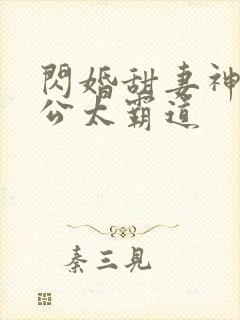 閃婚甜妻神
公太霸道
秦三見